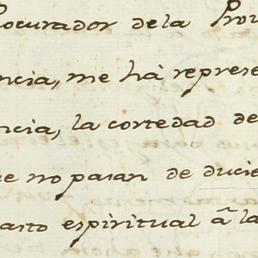 Procurador dela Prov
ncia, me há represe
ncia, la cortedad de
ue no pasan de ducie
asto espiritual â la